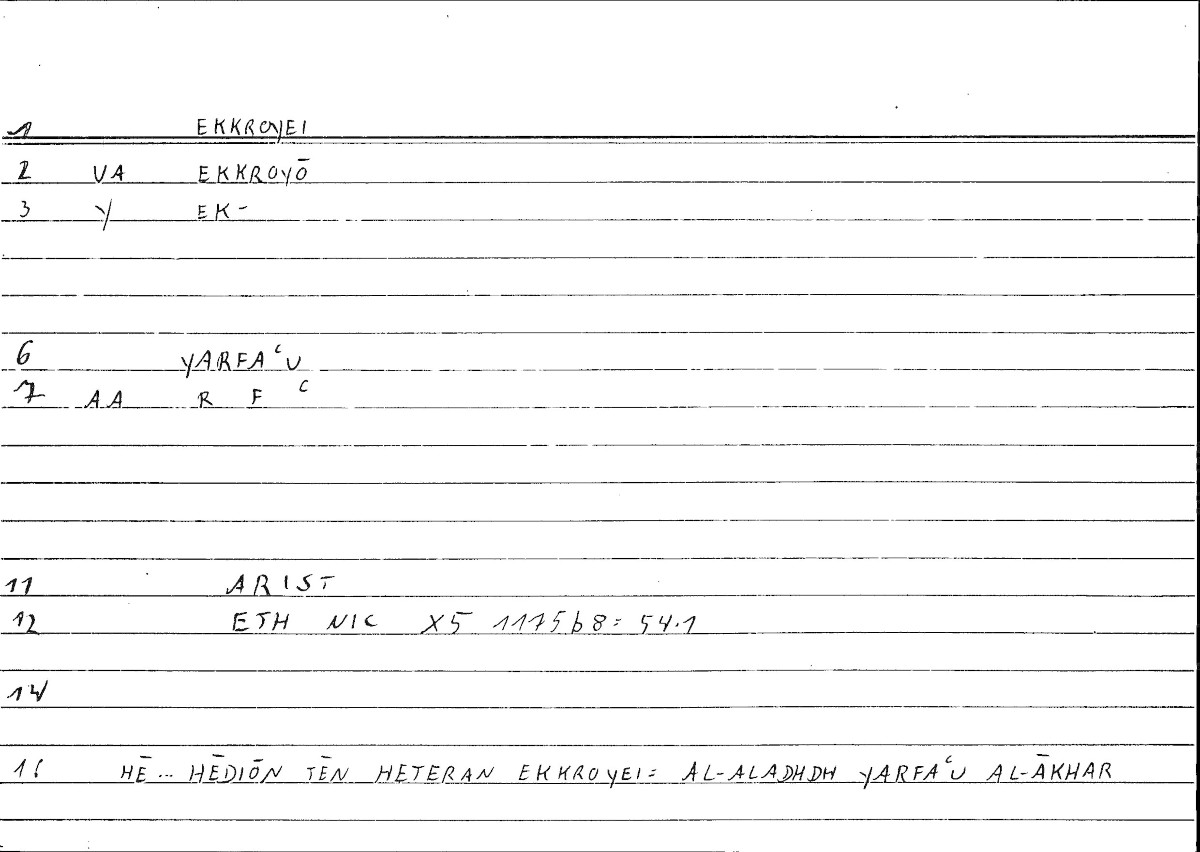 1 EKKROYEI
2 VA EKKROYŌ
3 Y EK-
6 YARFAᶜU
7 AA R F ᶜ
11 ARIST
12 ETH NIC X5 1175b8 = 54.1
14
16 HĒ... HĒDIŌN TĒN HETERAN EKKROYEI = AL-ALADHDH YARFAᶜU AL-ĀKHAR